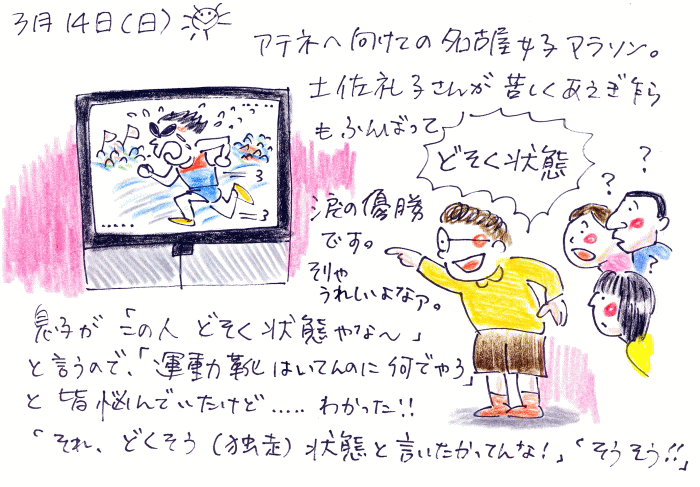 3月14日(日)
アテネへ向けての名古屋女子マラソン。
土佐礼子さんが苦しくあえぎ乍ら
もふんばって
どそく状態
? ?
?
涙の優勝
です。
そりゃ
うれしいよなァ。
息子が「この人 どそく状態やな〜」
と言うので、「運動靴はいてんのに何でやろ」
と皆悩んでいたけど..... わかった!!
「それ、どくそう(独走)状態と言いたかってんな!」「そうそう!!」